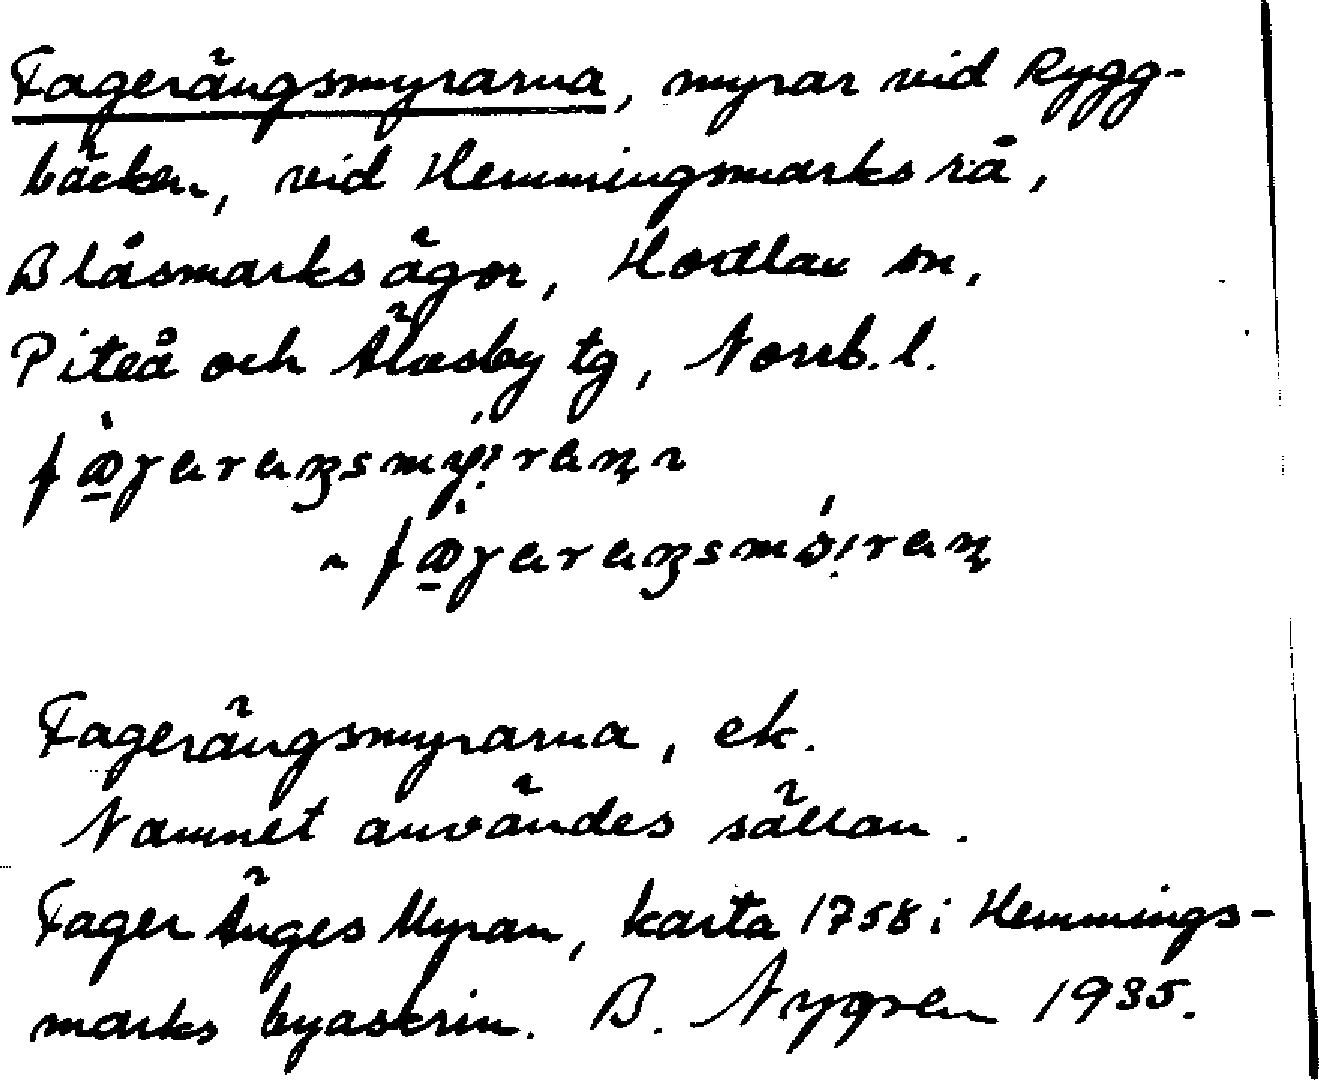 Fagerängsmyrarna, myrar vid Rygg-
bäcken, vid Hemmingsmarks rå,
Blåsmarks ägor, Hortlax sn,
Piteå och Älvsby tg, Norrb. l.
Fagerängsmyrarna, ek.
Namnet användes sällan.
Fager Änges Myran, karta 1758 i Hemmings-
marks byaskrin. B. Nygren 1935.